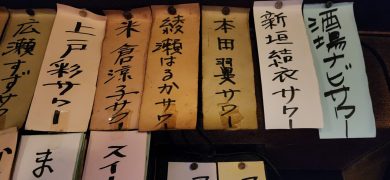 酒場ナビサワー
新垣結衣サワー
本田翼サワー
綾瀬はるかサワー
米倉涼子サワー
上戸彩サワー
広瀬すずサワー
スイ
ま